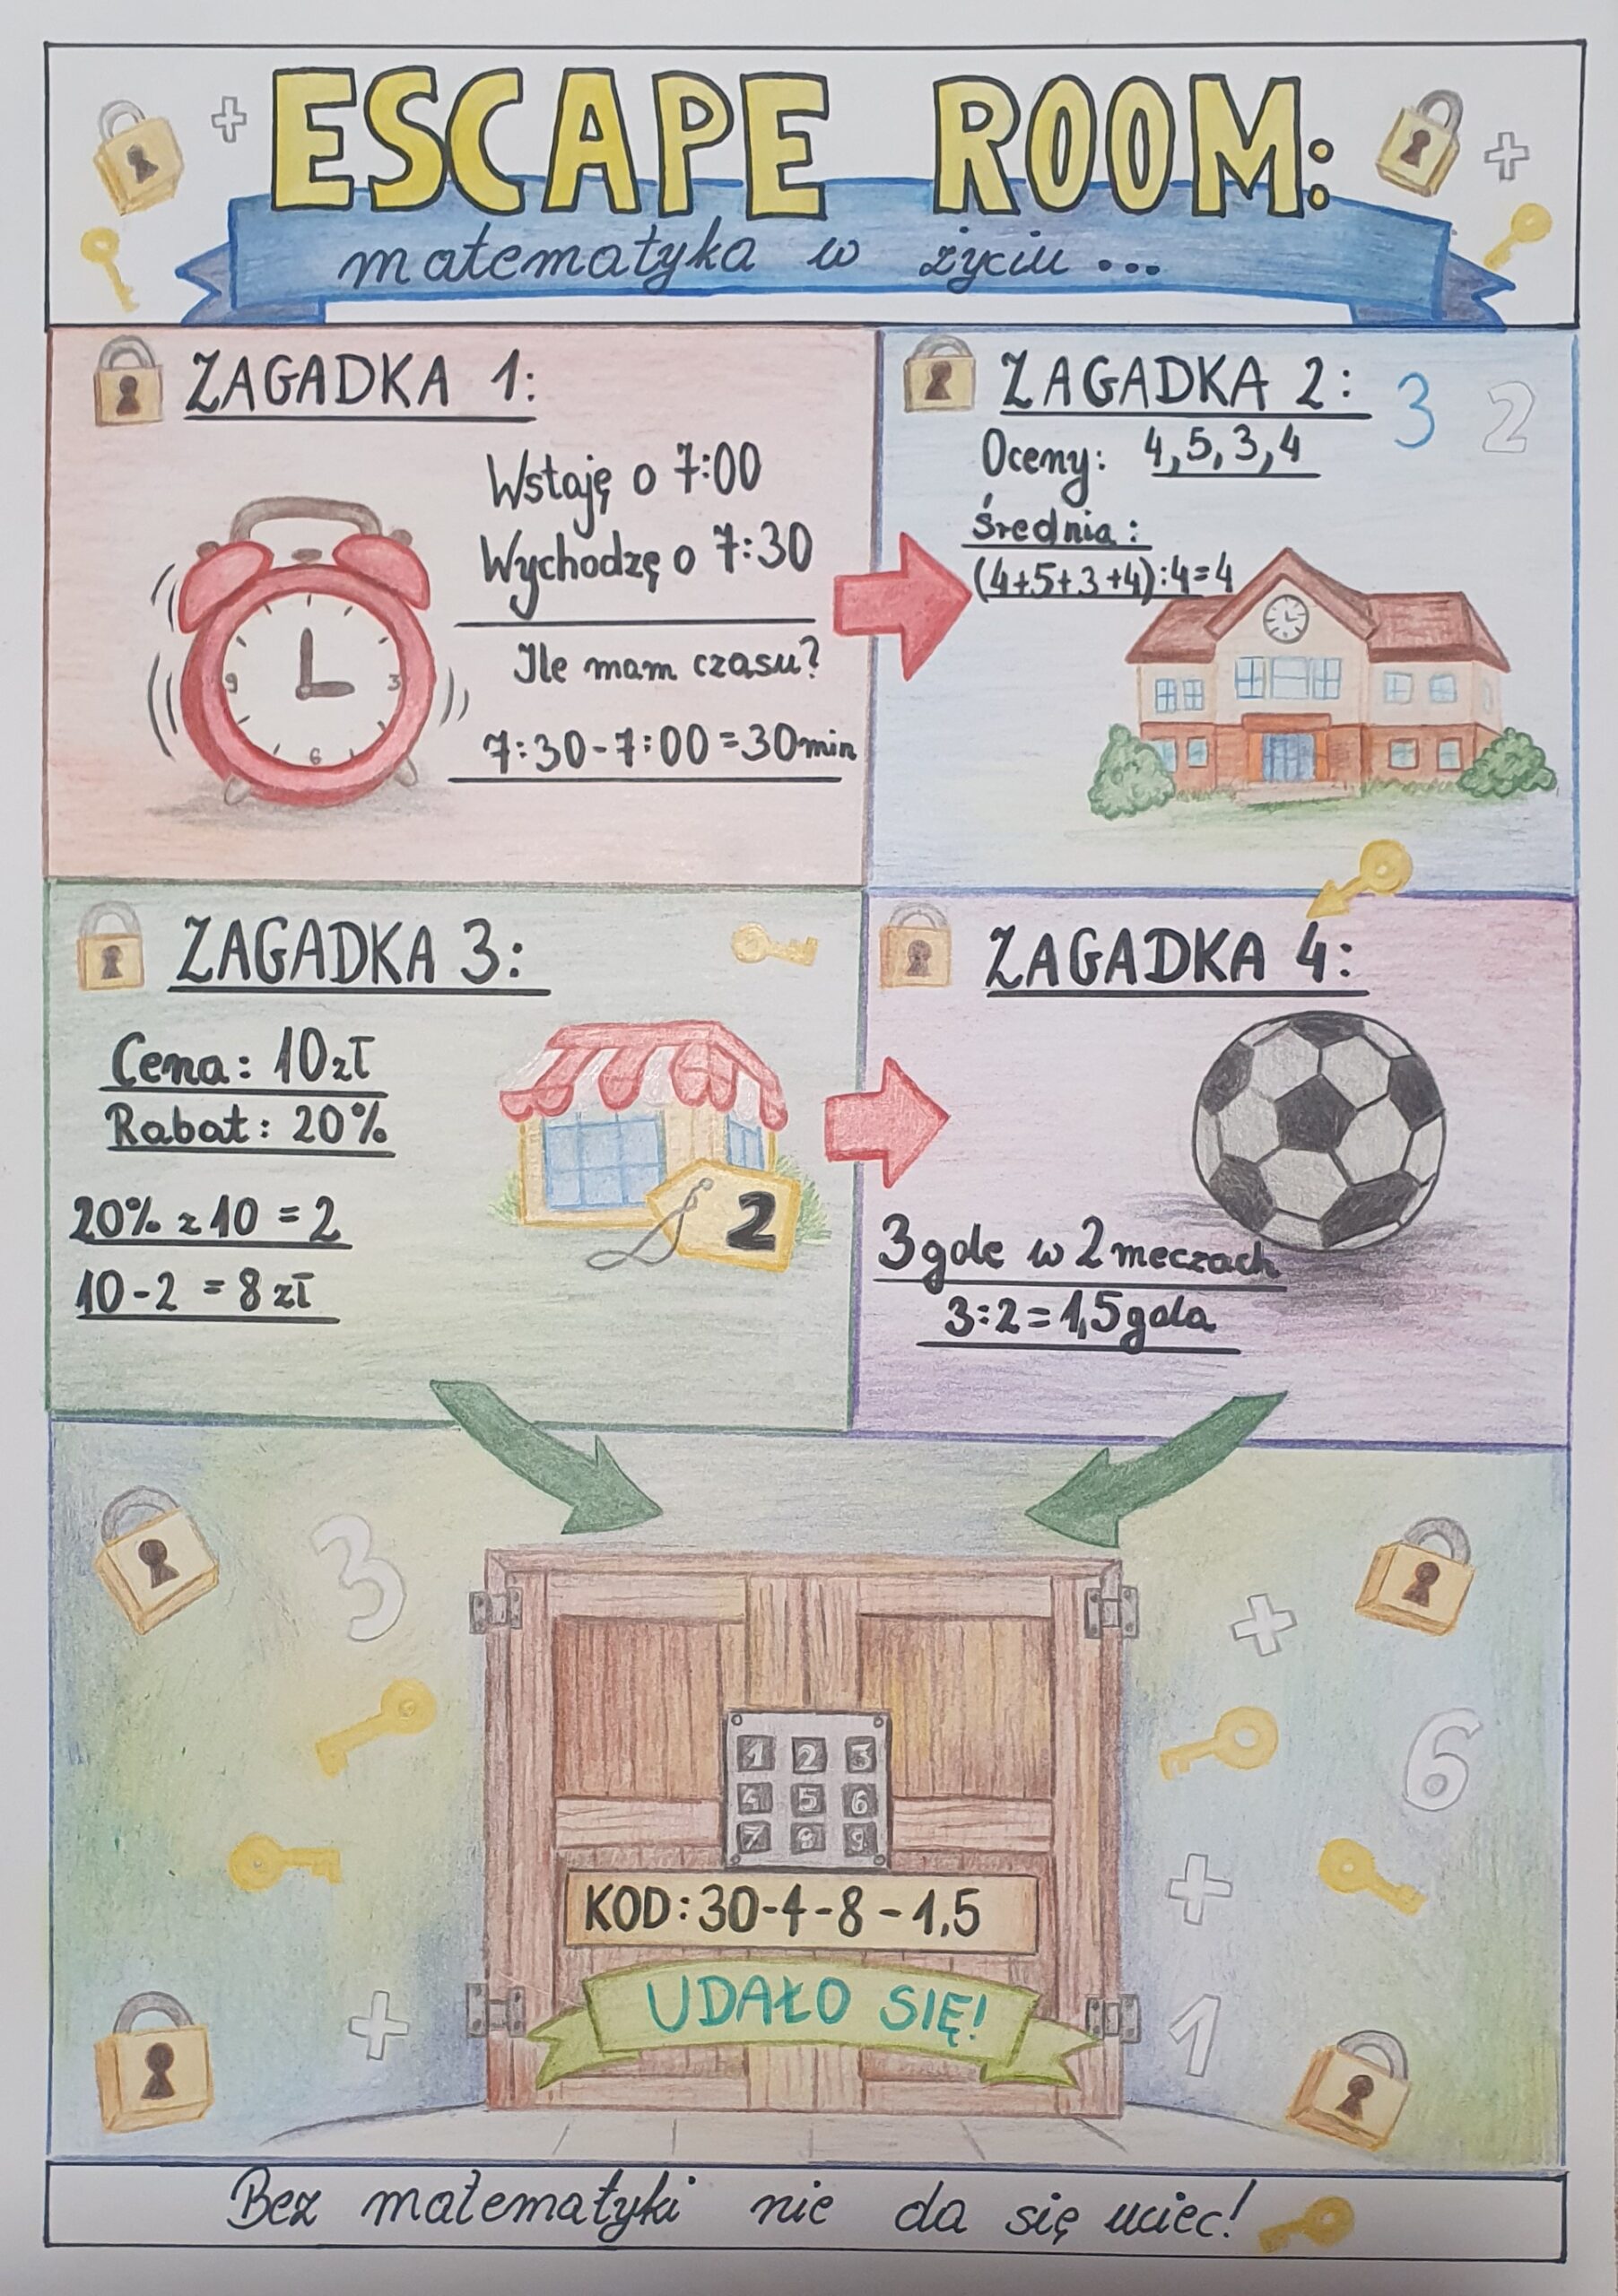 ESCAPE ROOM:
matematyka w życiu...
ZAGADKA 1:
Wstaję o 7:00
Wychodzę o 7:30
Ile mam czasu?
7:30-7:00=30min
9 3
6
ZAGADKA 2: 3 2
Oceny: 4,5,3,4
Średnia:
(4+5+3+4):4=4
ZAGADKA 3:
Cena: 10zł
Rabat: 20%
20% z 10 = 2
10-2 = 8 zł
2
ZAGADKA 4:
3 gole w 2 meczach
3:2=1,5 gola
3
+
6
1 2 3
4 5 6
7 8 9
+
KOD: 30-4-8-1,5
UDAŁO SIĘ!
+ 1
Bez matematyki nie da się uciec!